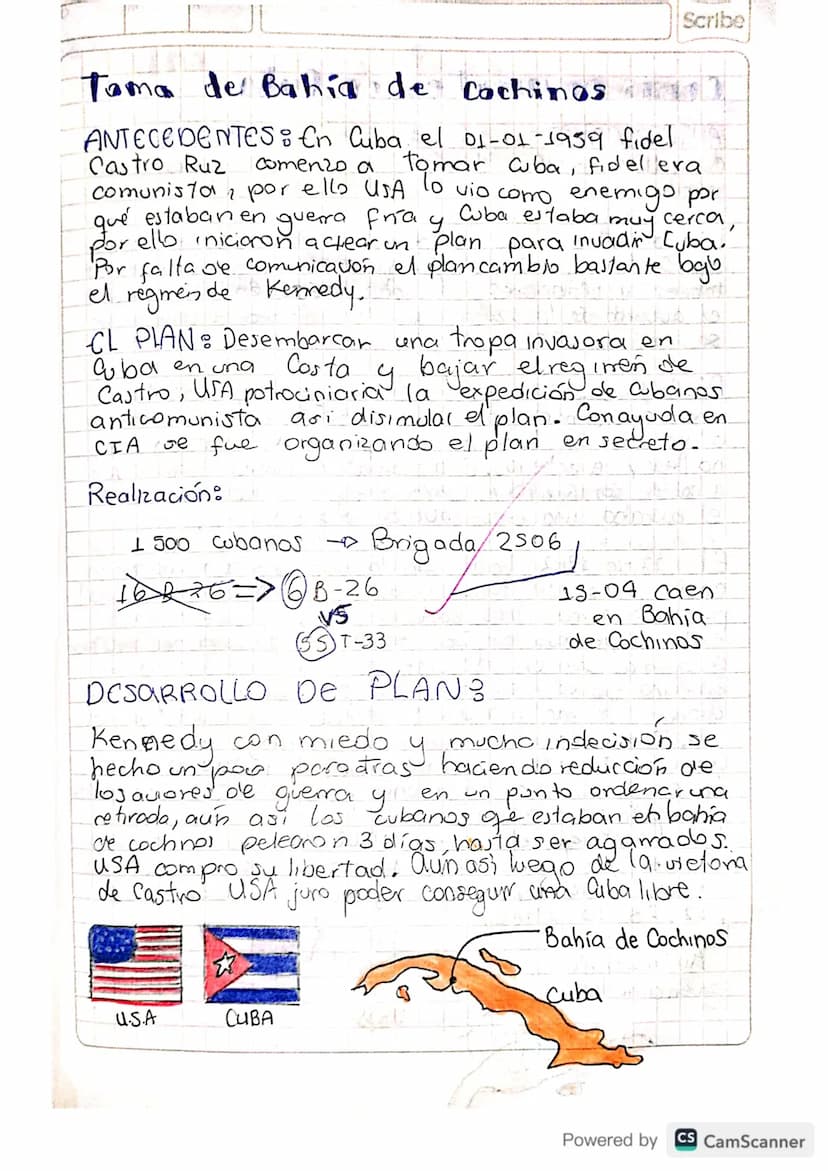 Scribe
Toma de Bahía de Cochinos
ANTECEDENTES: En Cuba el 01-01-1959 fidel
Castro Ruz comenzo a tomar Cuba, fidel era
comunista, por ello USA lo vio como enemigo por
qué estaban en guerra fria y Cuba estaba muy cerca,
por ello iniciaron a crear un plan para invadir Cuba.
Por falta de comunicación el plan cambio bastante bajo
el regmen de Kennedy.
EL PLAN: Desembarcar una tropa invasora en
Cuba en una Costa y bajar el regimen de
Castro, USA patrociniaria la expedición de cubanos
anticomunista asi disimular el plan. Con ayuda en
CIA se fue organizando el plan en secreto.
Realización:
1 500 cubanos → Brigada 2506
16 B-26 => 6 B-26
15-04 caen
en Bahía
VS
55 T-33
de Cochinos
DESARROLLO DE PLAN:
Kennedy con miedo y mucha indecisión se
hecho un poco para atras haciendo reducción de
los aviones de guerra y en un punto ordenar una
retirada, aún así los cubanos qe estaban en bahia
de cochnos pelearon 3 días, hasta ser agarrados.
USA compro su libertad. Aun asi luego de la victoria
de Castro USA juro poder conseguir una Cuba libre.
Bahía de Cochinos
Cuba
U.S.A CUBA
Powered by CS CamScanner